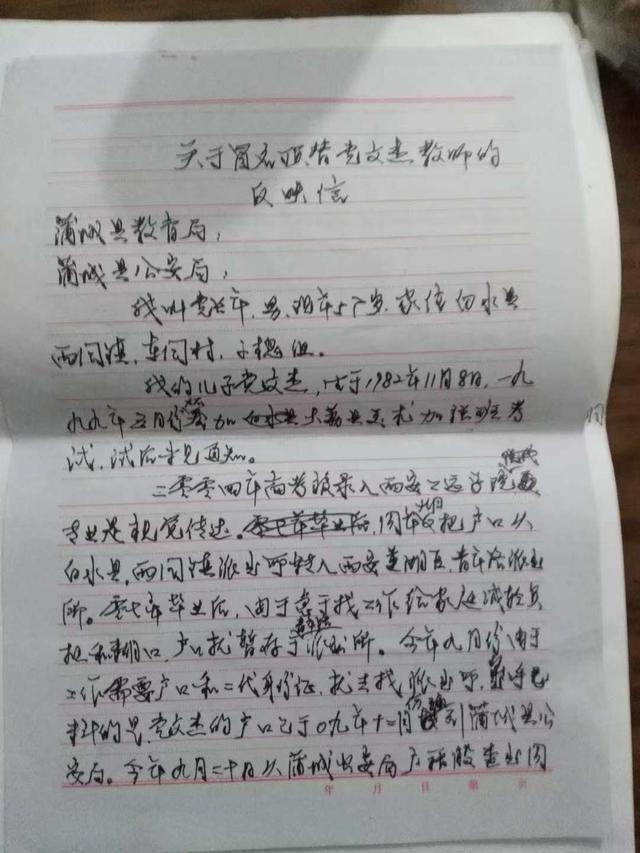 关于冒名顶替党文杰教师的
反映信
蒲城县教育局,
蒲城县公安局,
我叫党兴年,男,现年57岁,家住白水县
西固镇,东固村,子槐组。
我的儿子党文杰,出于1982年11月8日,一九
九九年五月份参加白水县大荔县美术加强班考
试,试后未见通知。
二零零四年高考被录入西安工运学院
专业是视觉传达。同年九月把户口从
白水县,西固镇派出所转入西安莲湖区,青年路派出
所。零七年毕业后,由于急于找工作给家庭减轻负
担和糊口,户口就暂存于派出所。今年九月份由于
工作需要户口和二代身份证,就去找派出所,
料的是党文杰的户口已于09年十二月到蒲城县公
安局。今年九月二十日从蒲城公安局户籍股查出同
年 月 日 第 页